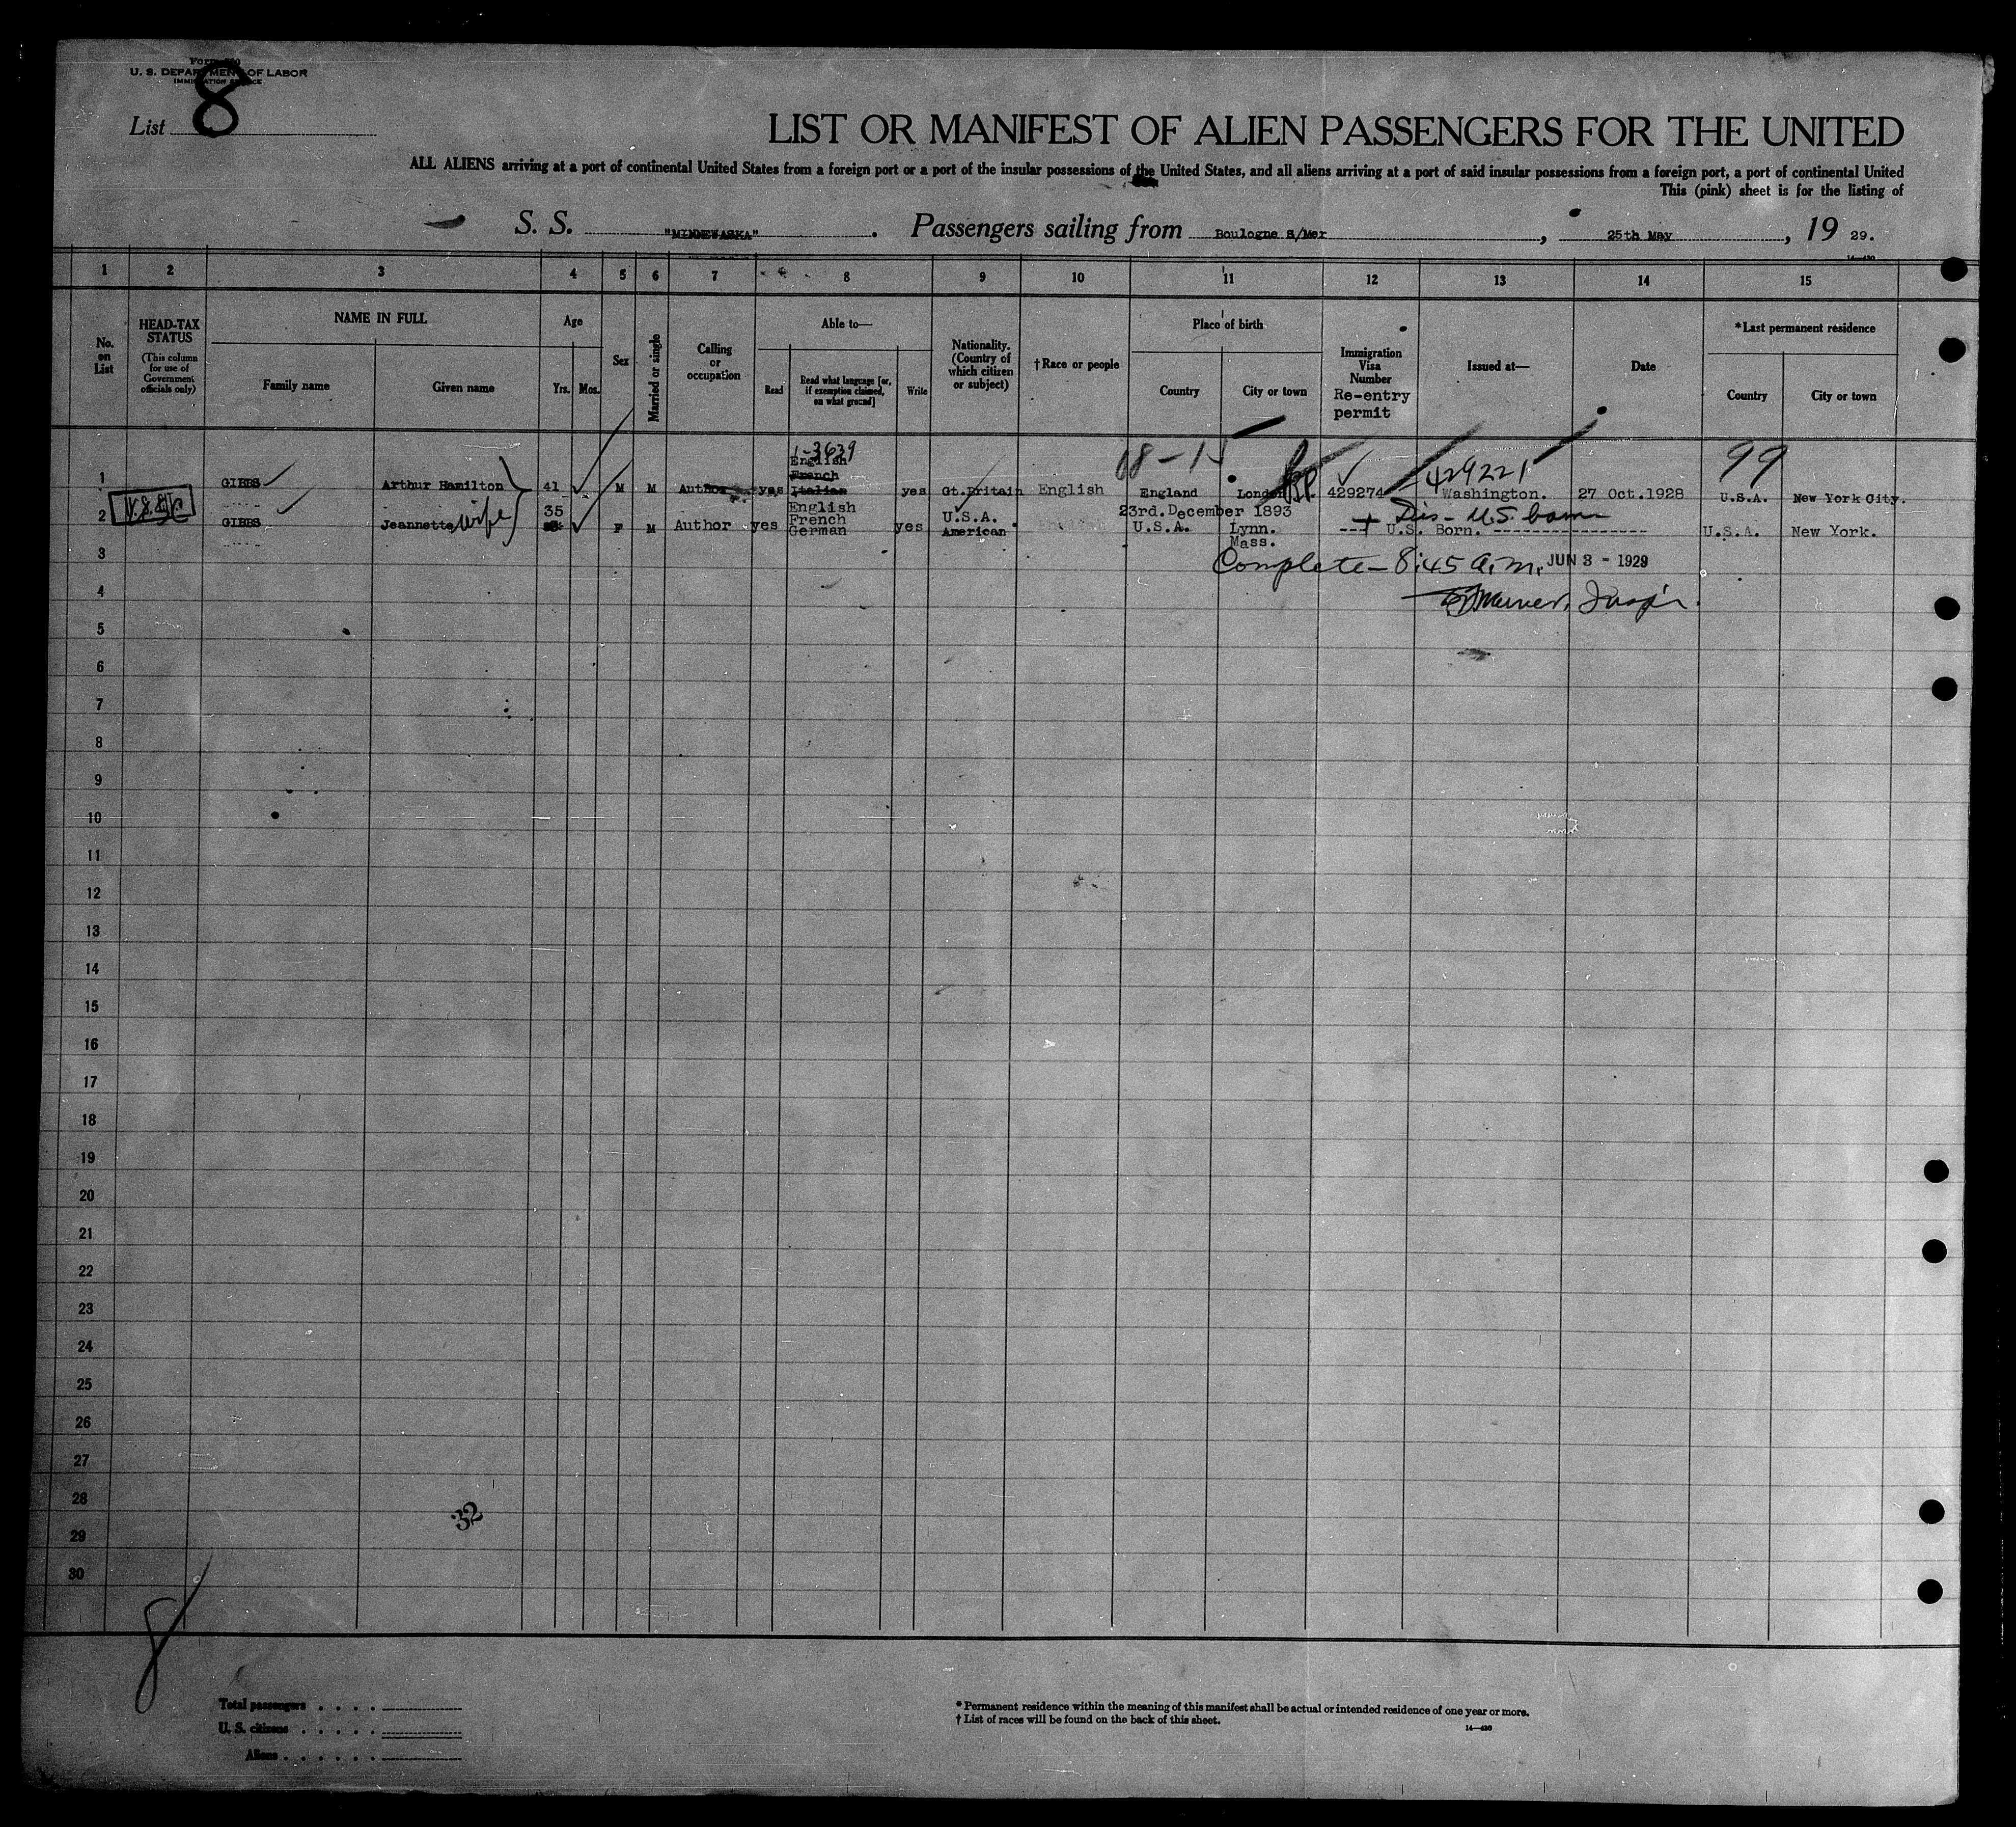 Form 500
U. S. DEPARTMENT OF LABOR
IMMIGRATION SERVICE
List 8
LIST OR MANIFEST OF ALIEN PASSENGERS FOR THE UNITED
ALL ALIENS arriving at a port of continental United States from a foreign port or a port of the insular possessions of the United States, and all aliens arriving at a port of said insular possessions from a foreign port, a port of continental United
This (pink) sheet is for the listing of
S. S. "MINNEWASKA". Passengers sailing from Boulogne S/Mer, 25th May, 19 29.
14—430
1 2 3 4 5 6 7 8 9 10 11 12 13 14 15
No. on List
HEAD-TAX STATUS
(This column for use of Government officials only)
NAME IN FULL
Family name
Given name
Age
Yrs. Mos.
Sex
Married or single
Calling or occupation
Able to—
Read
Read what language [or, if exemption claimed, on what ground]
Write
Nationality. (Country of which citizen or subject)
†Race or people
Place of birth
Country
City or town
Immigration Visa Number
Re-entry permit
Issued at—
Date
*Last permanent residence
Country
City or town
1-3639
68-15
99
1 GIBBS Arthur Hamilton 41 M M Author yes English French Italian yes Gt.Britain English England London R.P. 429274 429221 Washington. 27 Oct.1928 U.S.A. New York City.
23rd.December 1893
Dis- U.S. born
2 GIBBS Jeannette wife 35 F M Author yes English French German yes U.S.A. American English U.S.A. Lynn. Mass. --- U.S. Born. ----------------- U.S.A. New York.
3 Complete - 8:45 a.m. JUN 3 - 1929
4 Insp'r.
5
6
7
8
9
10
11
12
13
14
15
16
17
18
19
20
21
22
23
24
25
26
27
28
32
29
30
8
Total passengers . . . .
U. S. citizens . . . . .
Aliens . . . . . .
* Permanent residence within the meaning of this manifest shall be actual or intended residence of one year or more.
† List of races will be found on the back of this sheet.
14—430